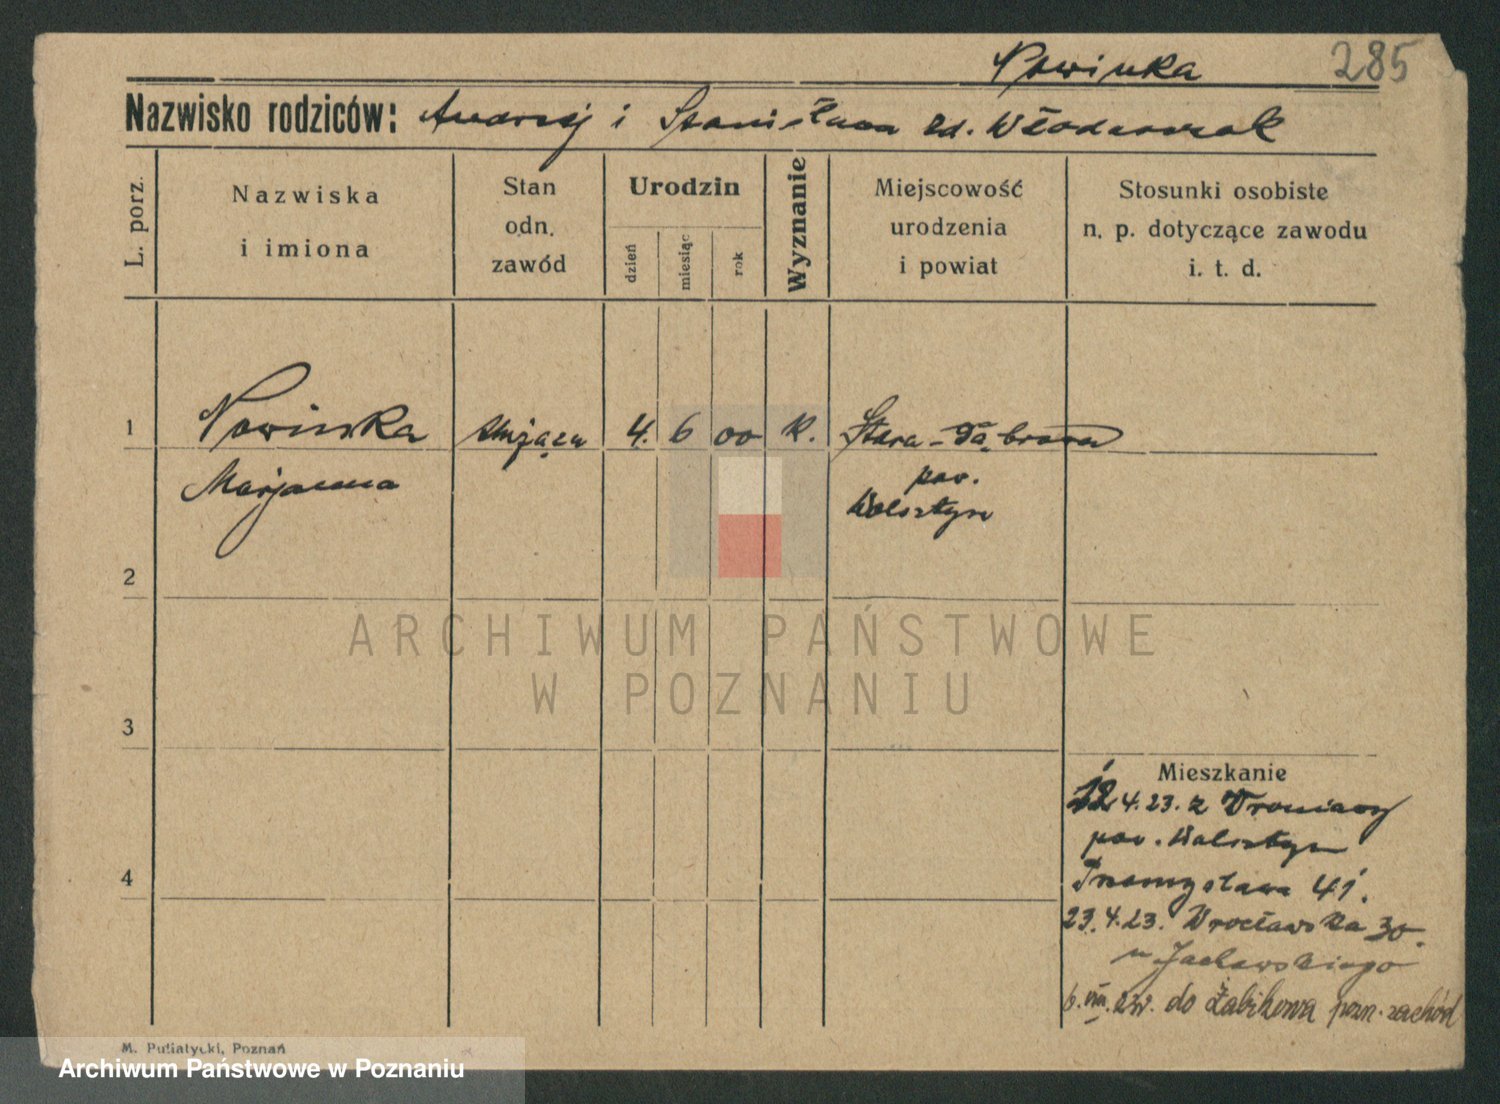 Nowinka 285
Nazwisko rodziców: Andrzej i Stanisława zd. Włodarczak
L. porz.
Nazwiska
i imiona
Stan
odn.
zawód
Urodzin
dzień
miesiąc
rok
Wyznanie
Miejscowość
urodzenia
i powiat
Stosunki osobiste
n. p. dotyczące zawodu
i. t. d.
1 Nowinka służąca 4. 6 00 k. Stara-Dąbrowa
Marjanna pow.
Wolsztyn
2
ARCHIWUM PAŃSTWOWE
W POZNANIU
3
Mieszkanie
12 4.23. z Wroniawy
pow. Wolsztyn
4
Przemysława 41.
23.4.23. Wrocławska 30.
u
6.VIII. do Żabikowa pozn. zachód
M. Putiatycki, Poznań
Archiwum Państwowe w Poznaniu